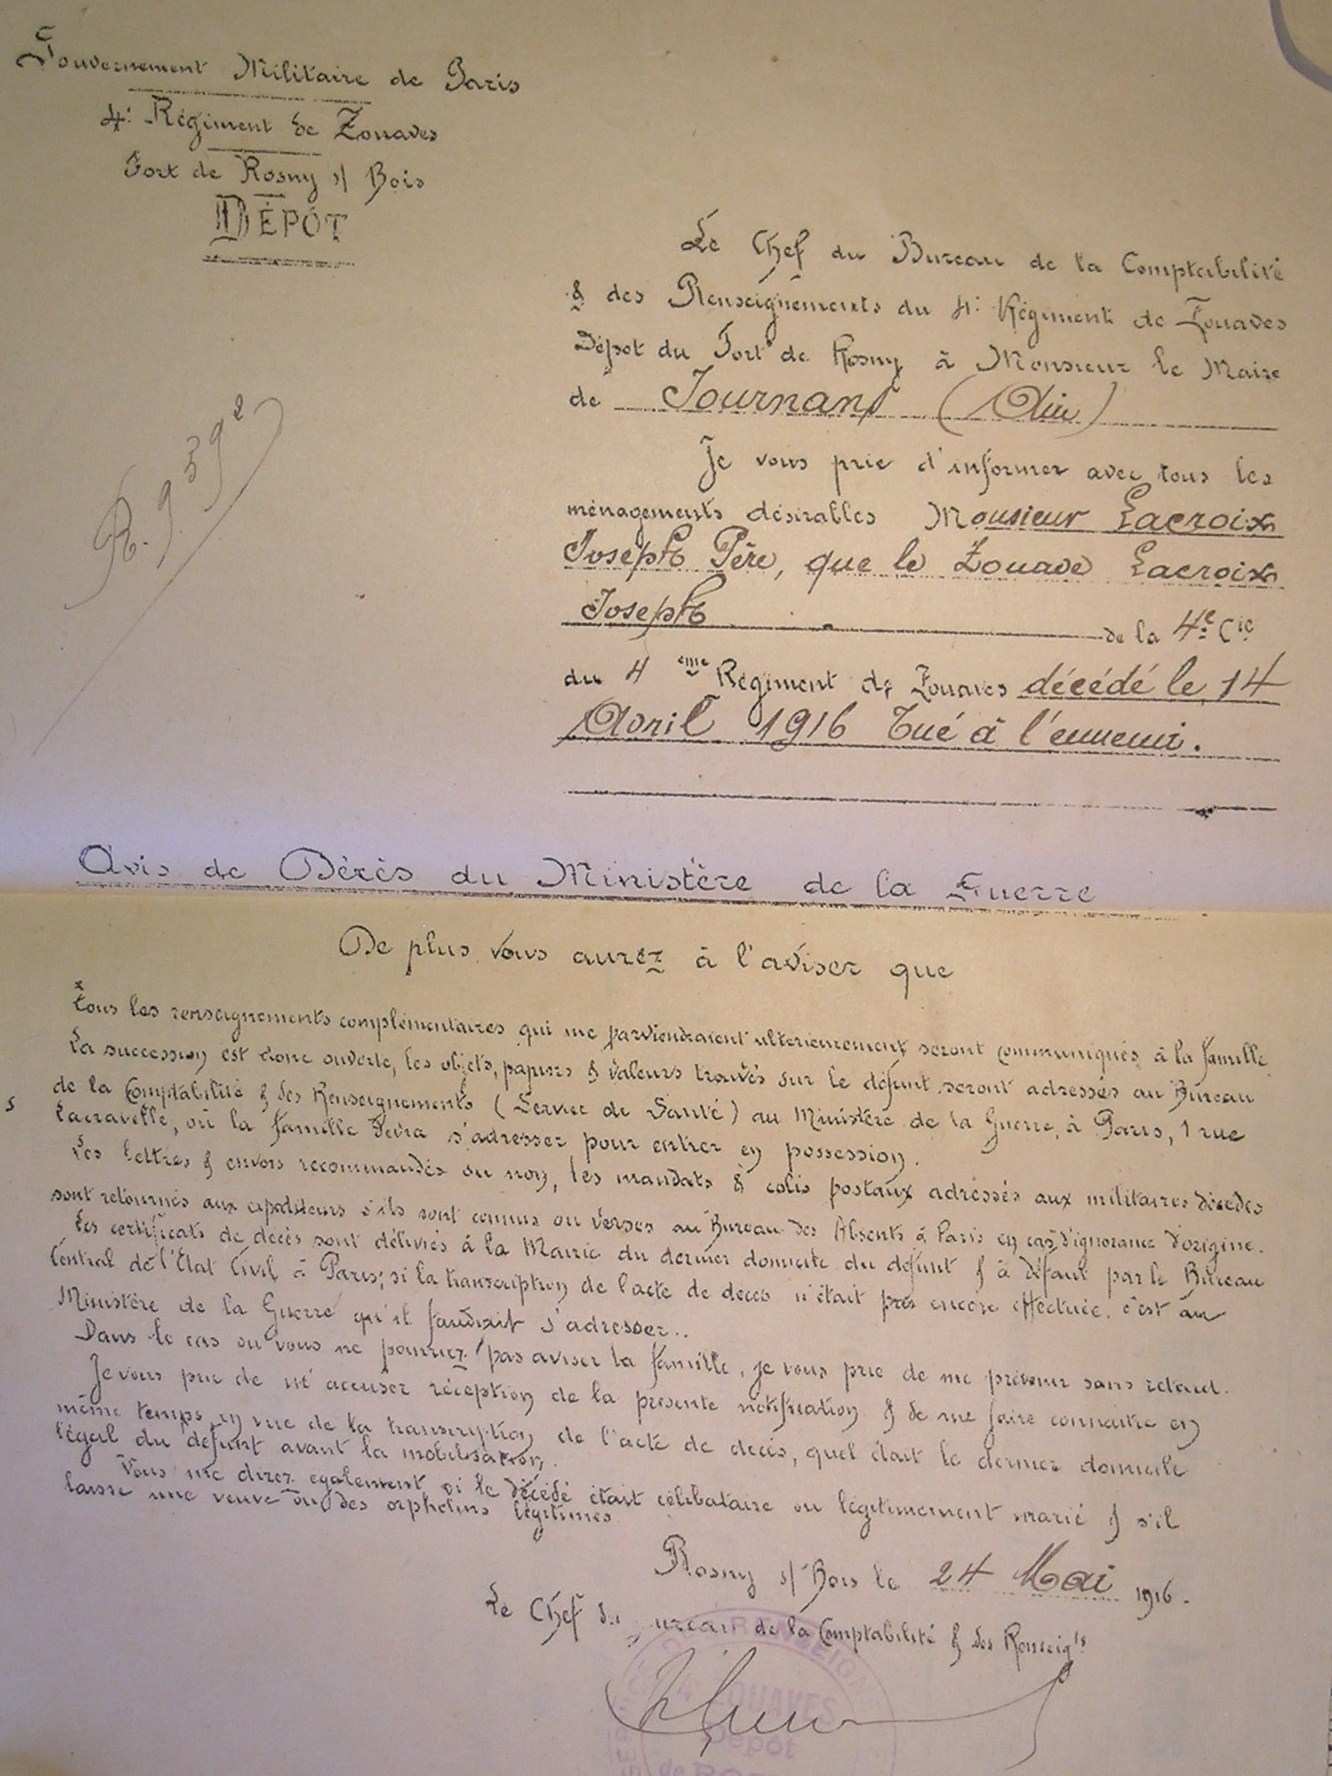 Gouvernement Militaire de Paris
4e Régiment de Zouaves
Fort de Rosny s/ Bois
DÉPÔT
Le Chef du Bureau de la Comptabilité
& des Renseignements du 4e Régiment de Zouaves
Dépot du Fort de Rosny à Monsieur le Maire
de Journans (Ain)
R. 9392
Je vous prie d'informer avec tous les
ménagements désirables Monsieur Lacroix
Joseph Père, que le Zouave Lacroix
Joseph de la 4e Cie
du 4 ème Régiment de Zouaves décédé le 14
Avril 1916 Tué à l'ennemi.
Avis de Décès du Ministère de la Guerre
De plus vous aurez à l'aviser que
tous les renseignements complémentaires qui me parviendraient ulterieurement seront communiqués à la famille
La succession est donc ouverte, les objets, papiers & valeurs trouvés sur le défunt seront adressés au Bureau
de la Comptabilité & des Renseignements (Service de Santé) au Ministère de la Guerre, à Paris, 1 rue
Lacretelle, où la famille devra s'adresser pour entrer en possession.
Les lettres & envois recommandés ou non, les mandats & colis postaux adressés aux militaires décédés
sont retournés aux expéditeurs s'ils sont connus ou versés au Bureau des Absents à Paris en cas d'ignorance d'origine.
Les certificats de décès sont délivrés à la Mairie du dernier domicile du défunt & à défaut par le Bureau
Central de l'Etat Civil à Paris; si la transcription de l'acte de décès n'était pas encore effectuée, c'est au
Ministère de la Guerre qu'il faudrait s'adresser..
Dans le cas ou vous ne pourriez pas aviser la famille, je vous prie de me prévenir sans retard.
Je vous prie de m'accuser réception de la présente notification & de me faire connaitre en
même temps en vue de la transcription de l'acte de décès, quel était le dernier domicile
légal du défunt avant la mobilisation.
Vous me direz également si le décédé était célibataire ou légitimement marié & s'il
laisse une veuve ou des orphelins légitimes
Rosny s/ Bois le 24 Mai 1916.
Le Chef du Bureau de la Comptabilité & des Renseigts
4 ZOUAVES
Dépôt